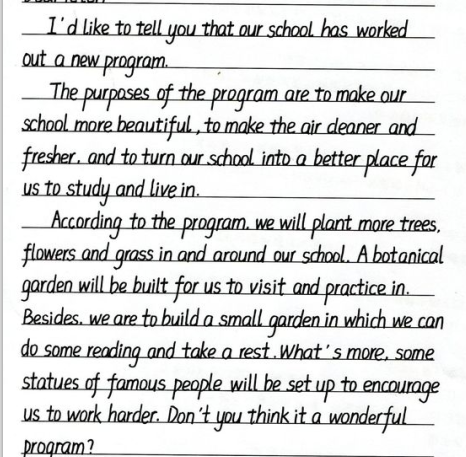 I'd like to tell you that our school has worked
out a new program.
The purposes of the program are to make our
school more beautiful, to make the air cleaner and
fresher, and to turn our school into a better place for
us to study and live in.
According to the program, we will plant more trees,
flowers and grass in and around our school. A botanical
garden will be built for us to visit and practice in.
Besides, we are to build a small garden in which we can
do some reading and take a rest. What's more, some
statues of famous people will be set up to encourage
us to work harder. Don't you think it a wonderful
program?